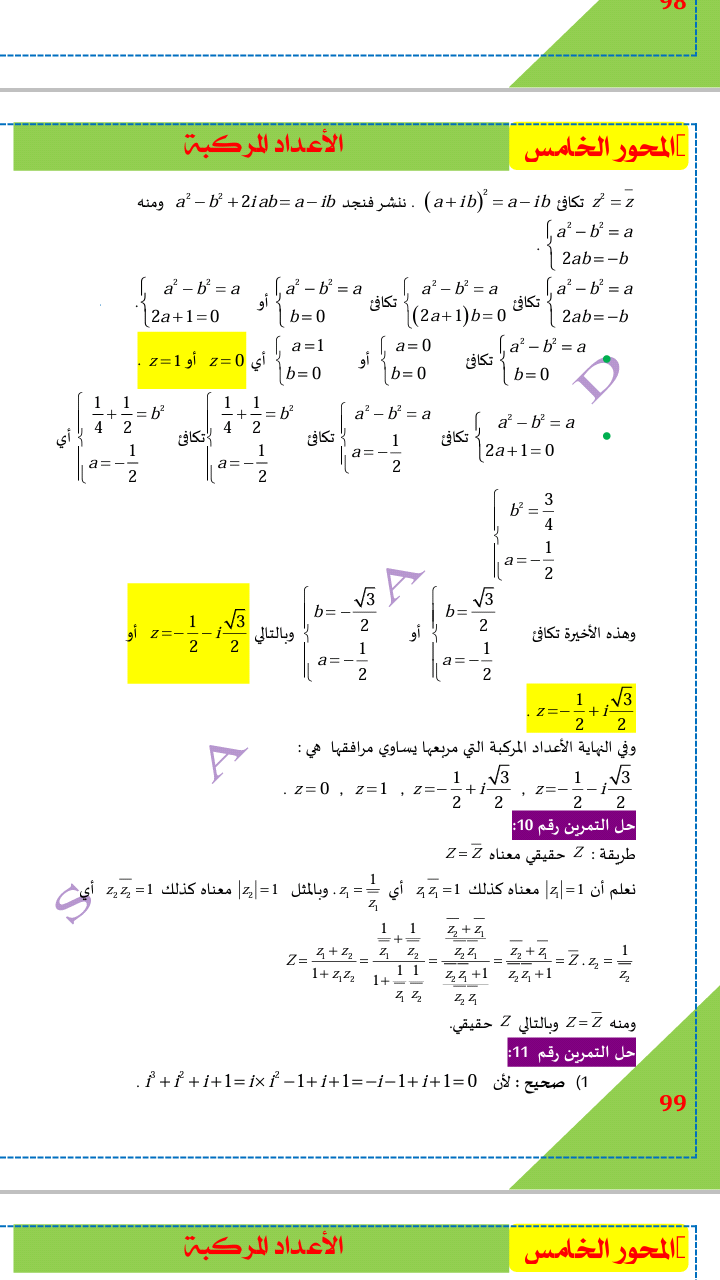 98
المحور الخامس الأعداد المركبة
z² = z̅ تكافئ (a+ib)² = a−ib . ننشر فنجد a² − b² + 2iab = a − ib ومنه
{a² − b² = a ; 2ab = −b .
{a² − b² = a ; 2ab = −b تكافئ {a² − b² = a ; (2a+1)b = 0 تكافئ {a² − b² = a ; b = 0 أو {a² − b² = a ; 2a+1 = 0 .
• {a² − b² = a ; b = 0 تكافئ {a = 0 ; b = 0 أو {a = 1 ; b = 0 أي z = 0 أو z = 1 .
• {a² − b² = a ; 2a+1 = 0 تكافئ {a² − b² = a ; a = −1/2 تكافئ {1/4 + 1/2 = b² ; a = −1/2 تكافئ {1/4 + 1/2 = b² ; a = −1/2 أي
{b² = 3/4 ; a = −1/2
وهذه الأخيرة تكافئ {b = √3/2 ; a = −1/2 أو {b = −√3/2 ; a = −1/2 وبالتالي z = −1/2 − i√3/2 أو
z = −1/2 + i√3/2 .
وفي النهاية الأعداد المركبة التي مربعها يساوي مرافقها هي :
z = −1/2 − i√3/2 , z = −1/2 + i√3/2 , z = 1 , z = 0 .
حل التمرين رقم 10:
طريقة : Z حقيقي معناه Z = Z̅
نعلم أن |z₁| = 1 معناه كذلك z₁z̅₁ = 1 أي z₁ = 1/z̅₁ . وبالمثل |z₂| = 1 معناه كذلك z₂z̅₂ = 1 أي
Z = (z₁ + z₂)/(1 + z₁z₂) = (1/z̅₁ + 1/z̅₂)/(1 + 1/z̅₁ 1/z̅₂) = ((z̅₂ + z̅₁)/(z̅₂ z̅₁))/((z̅₂ z̅₁ + 1)/(z̅₂ z̅₁)) = (z̅₂ + z̅₁)/(z̅₂ z̅₁ + 1) = Z̅ . z₂ = 1/z̅₂
ومنه Z = Z̅ وبالتالي Z حقيقي.
حل التمرين رقم 11:
1) صحيح : لأن i³ + i² + i + 1 = i × i² − 1 + i + 1 = −i − 1 + i + 1 = 0 .
99
S A A D
المحور الخامس الأعداد المركبة